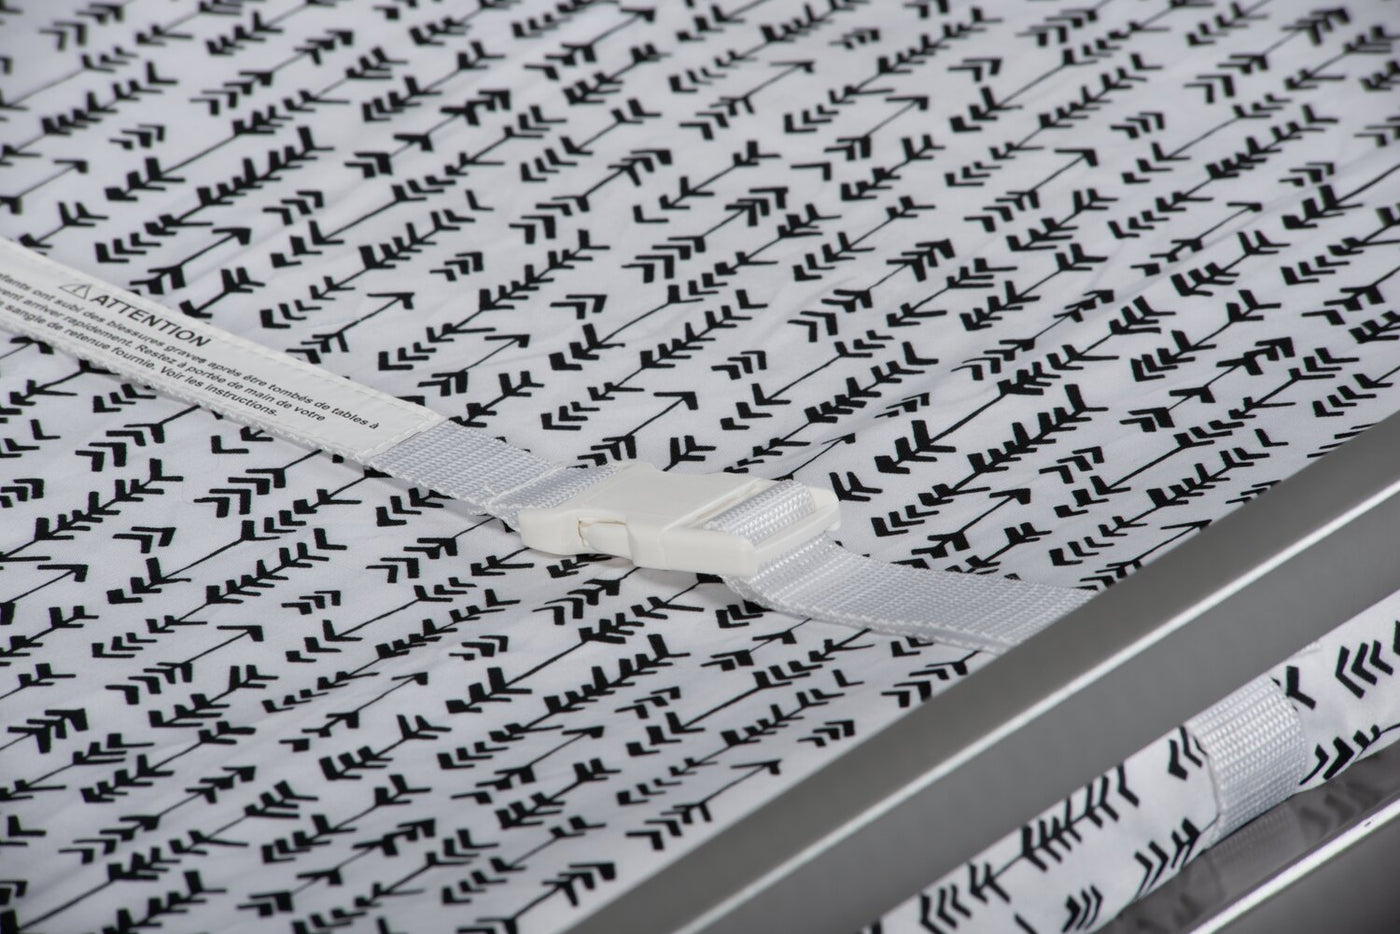 ⚠ ATTENTION
enfants ont subi des blessures graves après être tombés de tables à
arriver rapidement. Restez à portée de main de votre
sangle de retenue fournie. Voir les instructions.